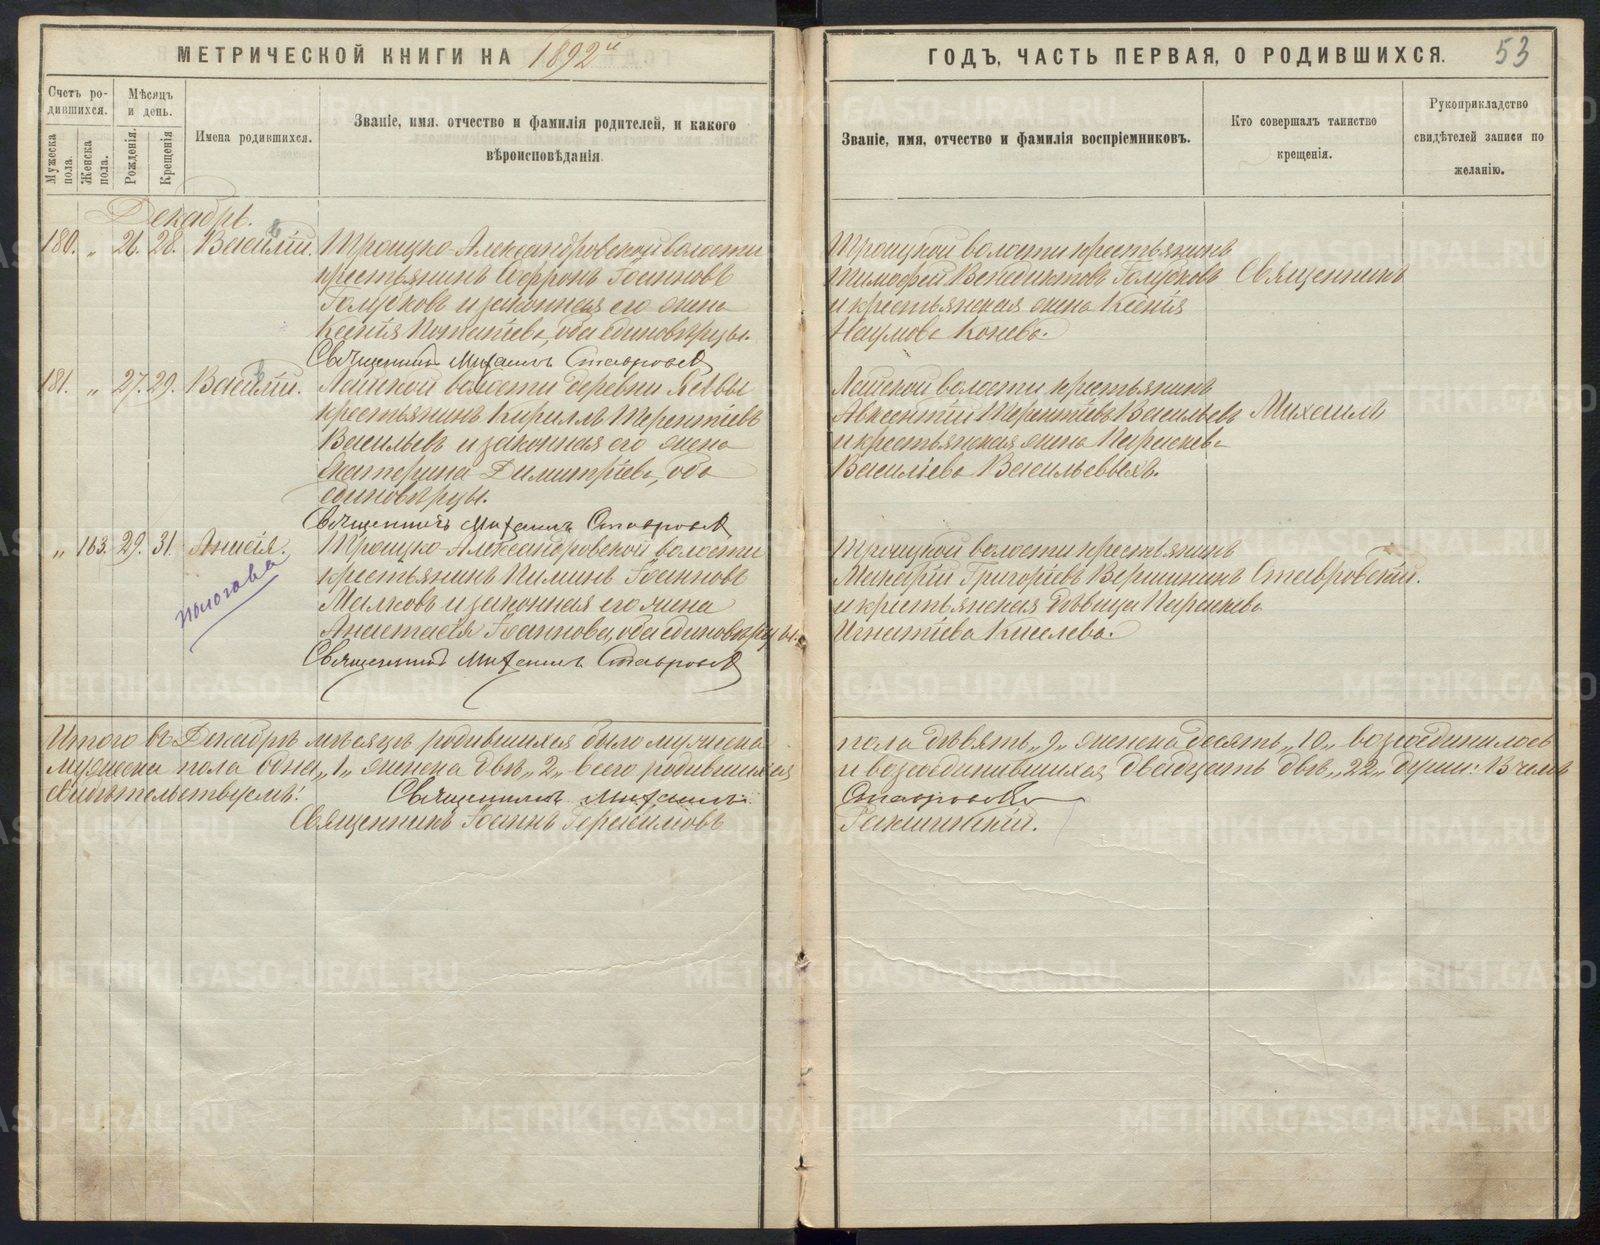 МЕТРИЧЕСКОЙ КНИГИ НА 1892й
ГОДЪ, ЧАСТЬ ПЕРВАЯ, О РОДИВШИХСЯ.
53
Счетъ ро-
дившихся.
Мужеска
пола.
Женска
пола.
Мѣсяцъ
и день.
Рожденія.
Крещенія
Имена родившихся.
Званіе, имя, отчество и фамилія родителей, и какого
вѣроисповѣданія.
Званіе, имя, отчество и фамилія воспріемниковъ.
Кто совершалъ таинство
крещенія.
Рукоприкладство
свидѣтелей записи по
желанію.
Декабрь.
180. „ 26. 28. Василій.
Троицко-Александровской волости
крестьянинъ Софронъ Іоанновъ
Голубковъ и законная его жена
Ксенія Потапіева, оба единовѣрцы.
Священникъ Михаилъ Ставровскій
Троицкой волости крестьянинъ
Тимофей Венедиктовъ Голубковъ
и крестьянская жена Ксенія
Наумова Конева.
Священникъ
181. „ 27. 29. Василій.
Лайской волости деревни
крестьянинъ Кириллъ Терентіевъ
Васильевъ и законная его жена
Екатерина Димитріева, оба
единовѣрцы.
Священникъ Михаилъ Ставровскій
Лайской волости крестьянинъ
Авксентій Терентіевъ Васильевъ
и крестьянская жена Параскева
Василіева Васильевыхъ.
Михаилъ
„ 163. 29. 31. Анисія.
Троицко-Александровской волости
крестьянинъ Пиминъ Іоанновъ
Малковъ и законная его жена
Анастасія Іоаннова, оба единовѣрцы.
Священникъ Михаилъ Ставровскій
Троицкой волости крестьянинъ
Макарій Григоріевъ Вершининъ
и крестьянская дѣвица Параскева
Игнатіева Киселева.
Ставровскій.
Итого въ Декабрѣ мѣсяцѣ родившихся было мужеска
пола девять „9„ женска десять „10„ возсоединилось
мужеска пола одна „1„ женска двѣ „2„ всего родившихся
и возсоединившихся двадцать двѣ „22„ души: В чемъ
свидѣтельствуемъ:
Священникъ Михаилъ
Ставровскій
Священникъ Іоаннъ Герасимовъ
METRIKI.GASO-URAL.RU